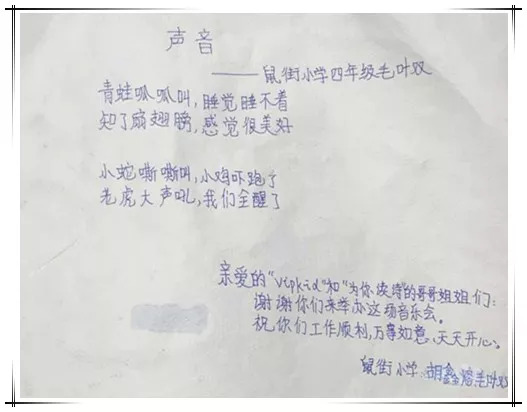 声音
——鼠街小学四年级毛叶双
青蛙呱呱叫,睡觉睡不着
知了扇翅膀,感觉很美好
小蛇嘶嘶叫,小鸡吓跑了
老虎大声吼,我们全醒了
亲爱的"vipkid"和"为你读诗"的哥哥姐姐们:
谢谢你们来举办这场音乐会。
祝你们工作顺利,万事如意、天天开心。
鼠街小学 胡鑫 毛叶双